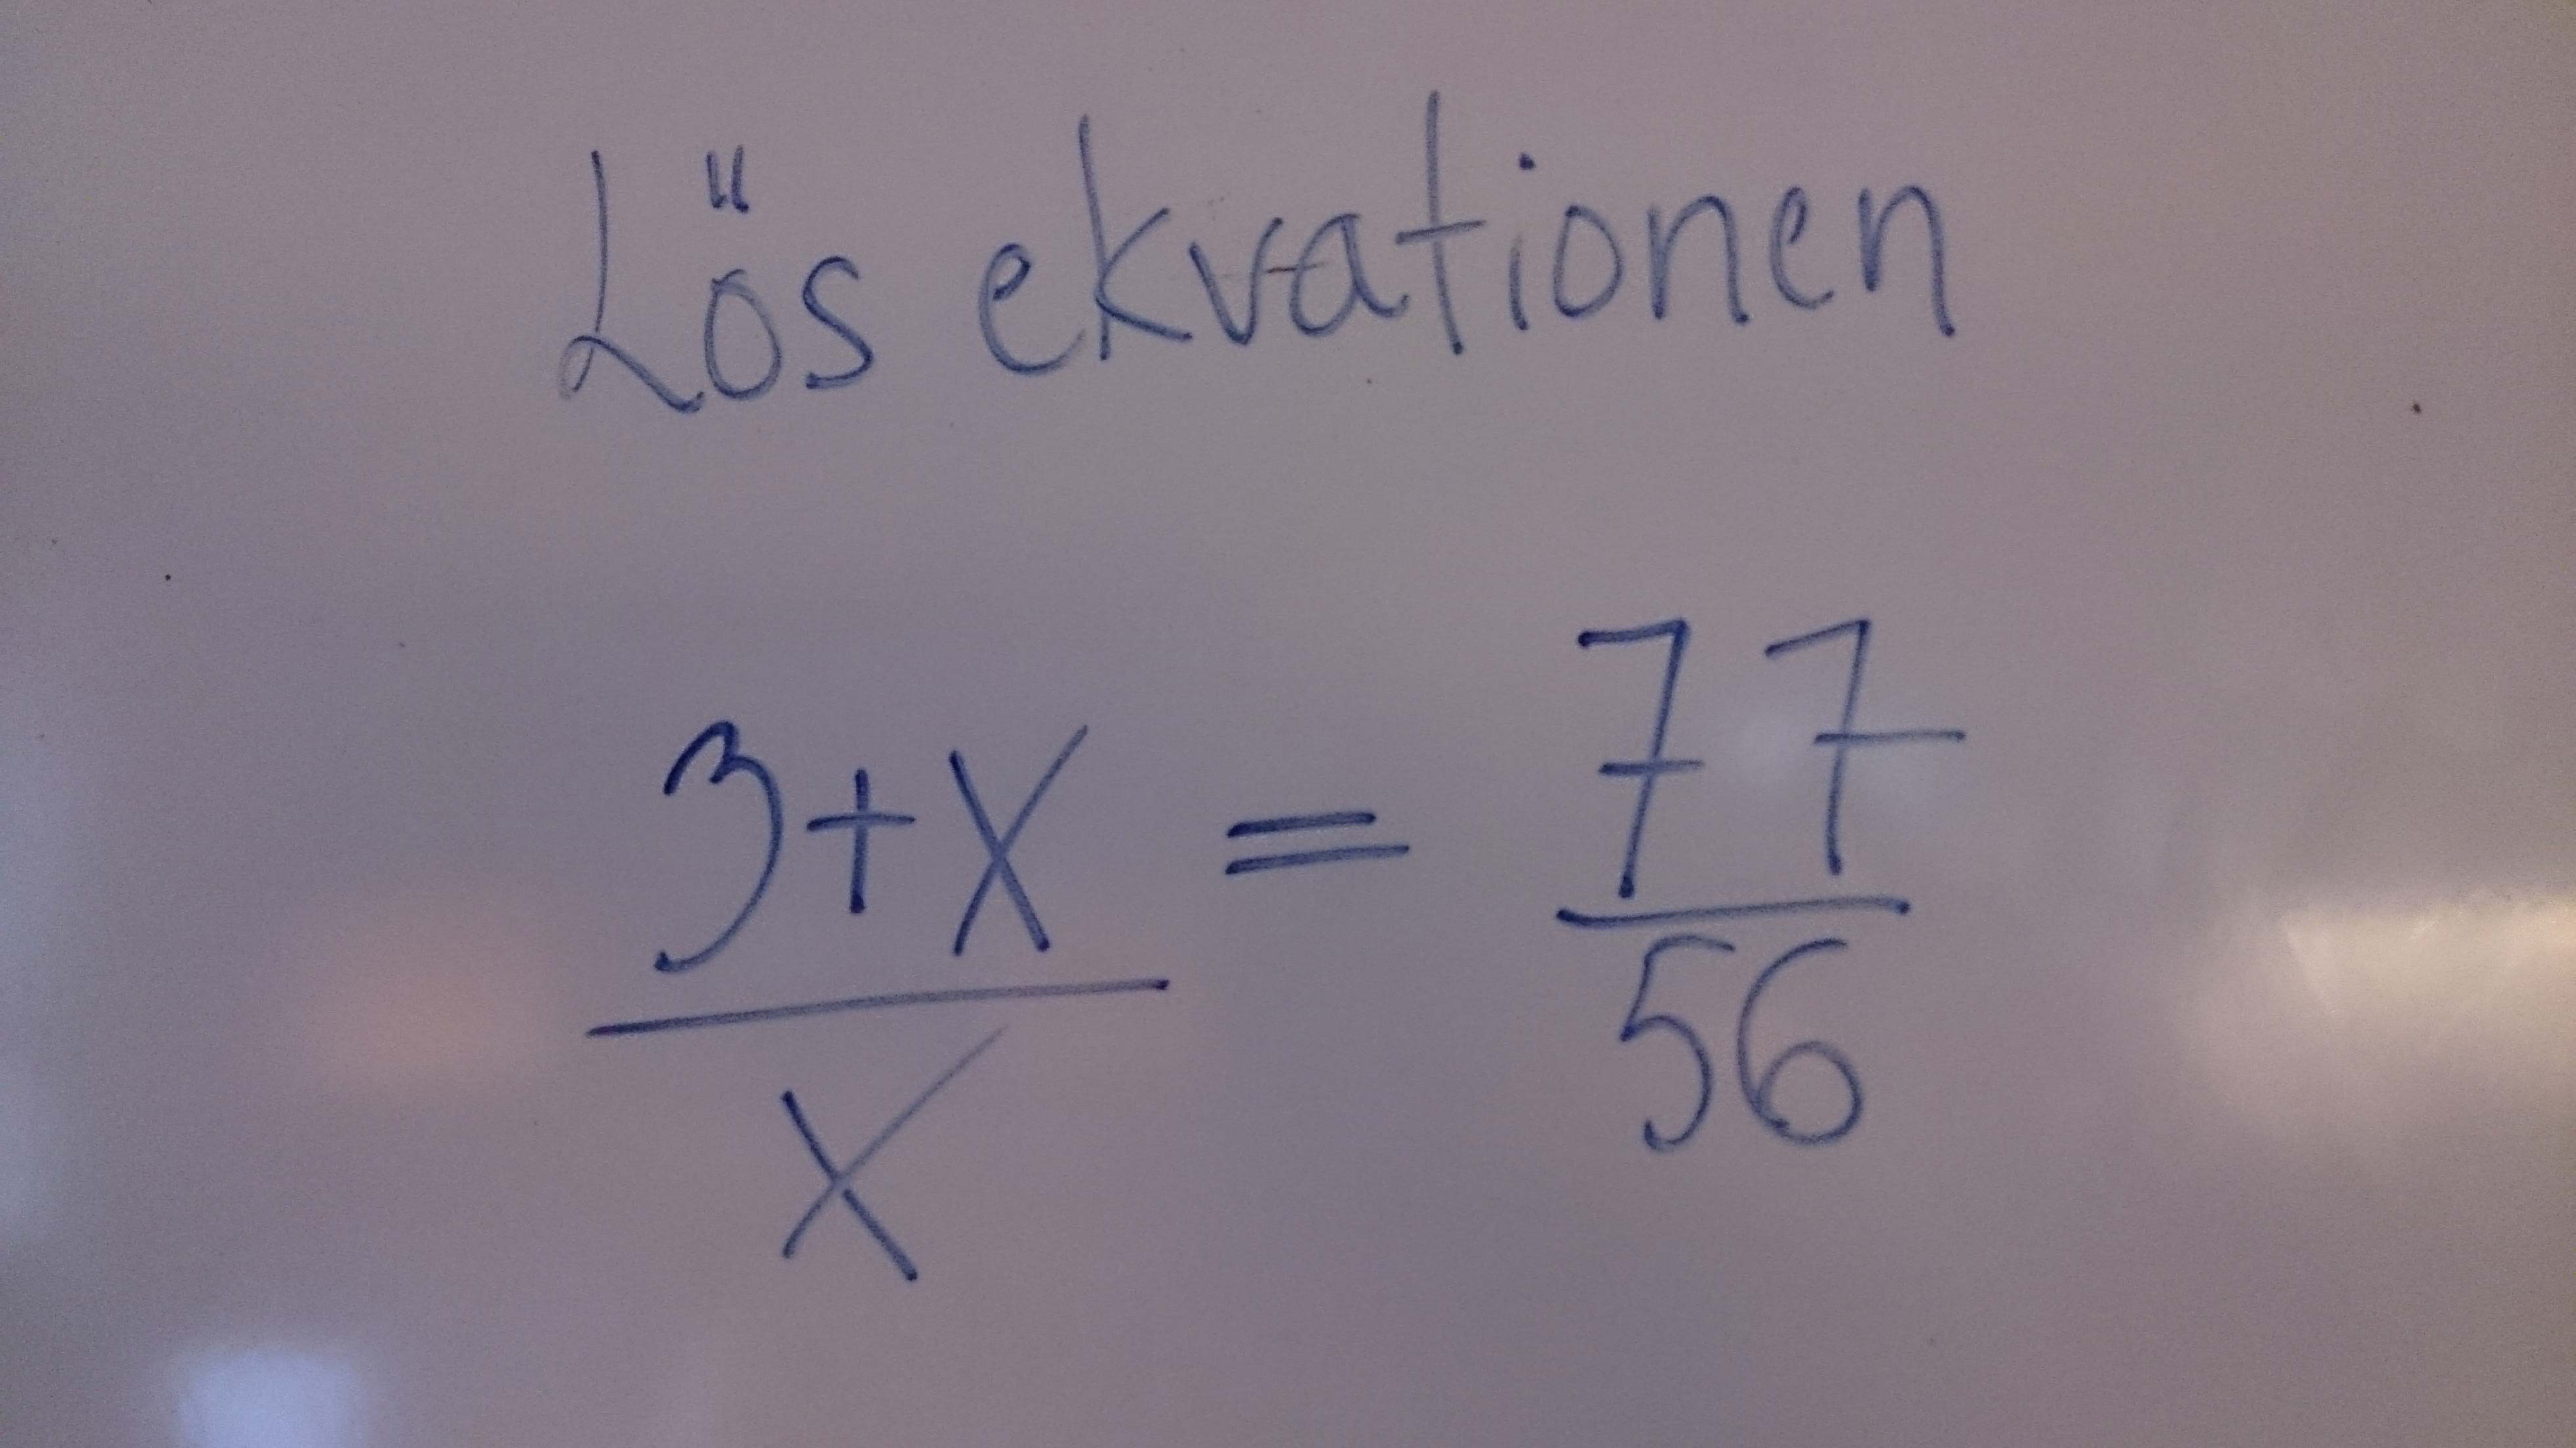 Lös ekvationen
3+x = 77
x 56